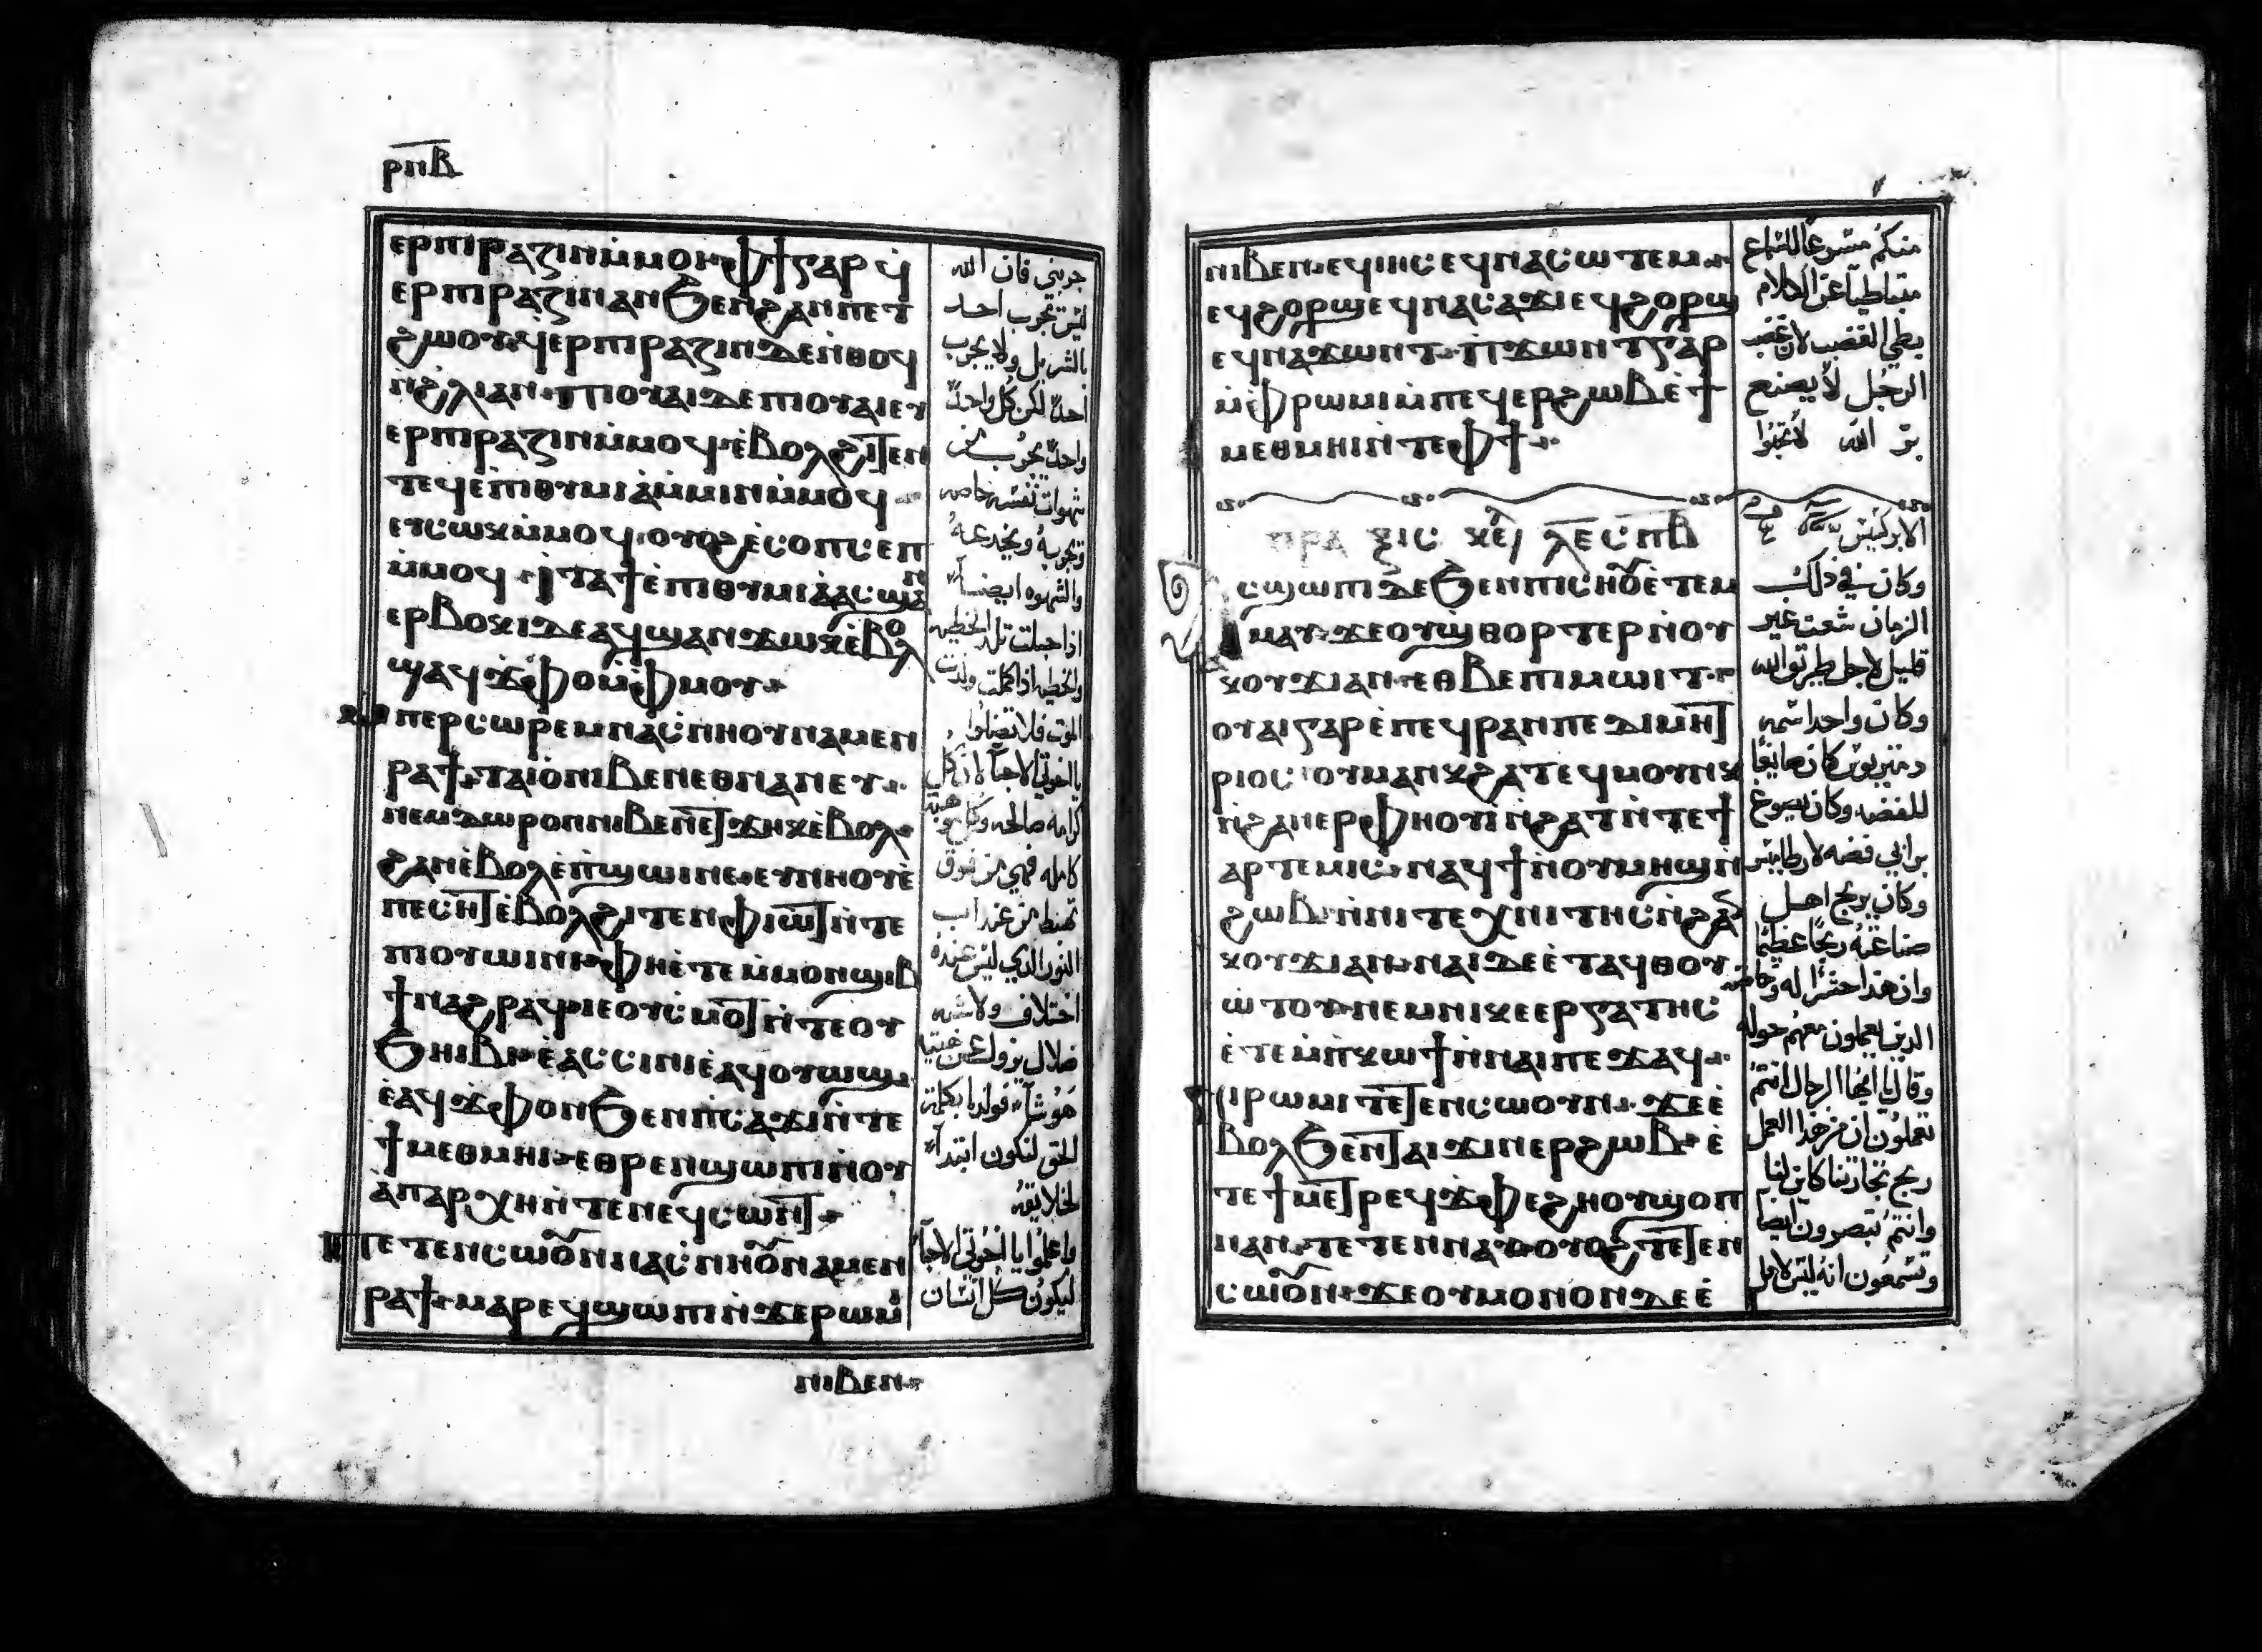 ⲣⲡⲃ
ⲉⲣⲡⲓⲣⲁⲍⲓⲛⲙ̇ⲙⲟⲓ ⲫϯⲅⲁⲣ ϥ̇
ⲉⲣⲡⲓⲣⲁⲍⲓⲛⲁⲛϧⲉⲛϩⲁⲛⲡⲉⲧ
ϩⲱⲟⲩ ϥ̇ⲉⲣⲡⲓⲣⲁⲍⲓⲛⲇⲉⲛ̇ⲑⲟϥ
ⲛ̇ϩ̇ⲗⲓⲁⲛ ⲡⲓⲟⲩⲁⲓⲇⲉⲡⲓⲟⲩⲁⲓⲉⲩ
ⲉⲣⲡⲓⲣⲁⲍⲓⲛⲙ̇ⲙⲟϥ ⲉ̇ⲃⲟⲗϩⲓⲧⲉⲛ
ⲧⲉϥⲉ̇ⲡⲓⲑⲩⲙⲓⲁ̇ⲙ̇ⲙⲓⲛⲙ̇ⲙⲟϥ
ⲉⲧⲥⲱⲕⲙ̇ⲙⲟϥ ⲟⲩⲟϩⲉ̇ⲥⲟⲡⲥⲉⲡ
ⲙ̇ⲙⲟϥ ⲓⲧⲁϯⲉ̇ⲡⲓⲑⲩⲙⲓⲁ̇ⲁⲥϣⲁⲛ
ⲉⲣⲃⲟⲕⲓⲇⲉⲁϥϣⲁⲛϫⲱⲕⲉ̇ⲃⲟⲗ
ϣⲁϥϫ̇ⲫⲟⲙ̇ⲫⲙⲟⲩ
ⲙⲡⲉⲣⲥⲱⲣⲉⲙⲛⲁⲥ̇ⲛⲏⲟⲩⲛⲁⲙⲉⲛ
ⲣⲁϯ ⲧⲁⲓⲟ̇ⲛⲓⲃⲉⲛⲉⲑⲛⲁⲛⲉⲩ
ⲛⲉⲙⲇⲱⲣⲟⲛⲛⲓⲃⲉⲛⲉⲧϫⲏⲕⲉ̇ⲃⲟⲗ
ϩⲁⲛⲉ̇ⲃⲟⲗⲉ̇ⲡ̇ϣⲱⲓⲛⲉ ⲉⲩⲛⲏⲟⲩⲉ̇
ⲡⲉⲥⲏⲧⲉ̇ⲃⲟⲗϩⲓⲧⲉⲛⲫⲓⲱⲧⲛ̇ⲧⲉ
ⲡⲓⲟⲩⲱⲓⲛⲓ ⲫⲏⲉ̇ⲧⲉⲙ̇ⲙⲟⲛϣⲓⲃ
ϯⲛⲁϩⲣⲁϥⲓⲉⲟⲩⲥ̇ⲙⲟⲧⲛ̇ⲧⲉⲟⲩ
ϧⲏⲓⲃⲓ ⲉ̇ⲁⲥⲥⲓⲛⲓⲉ̇ⲁϥⲟⲩⲱϣ
ⲉ̇ⲁϥϫ̇ⲫⲟⲛϧⲉⲛⲡ̇ⲥⲁϫⲓⲛ̇ⲧⲉ
ϯⲙⲉⲑⲙⲏⲓ ⲉⲑⲣⲉⲛϣⲱⲡⲓⲛ̇ⲟⲩ
ⲁ̇ⲡⲁⲣⲭⲏⲛ̇ⲧⲉⲛⲉϥⲥⲱⲛⲧ
ⲧⲉⲧⲉⲛⲥⲱⲟⲩⲛⲛⲁⲥ̇ⲛⲏⲟⲩⲛⲁⲙⲉⲛ
ⲣⲁϯ ⲙⲁⲣⲉϥϣⲱⲡⲓⲛ̇ϫⲉⲣⲱⲙⲓ
ⲛⲓⲃⲉⲛ
جربني فان الله
ليس تجرب احد
بالشر بل ولا يجرب
احدا لكن كل واحد
واحد يجرب من
شهوات نفسه خاصه
وتجربه ويخدعه
والشهوه ايضا
اذا حبلت تلد الخطيه
والخطيه اذا كملت ولدت
الموت فلا تضلوا
يا اخوتي الاحبا لان كل
كرامه صالحه وكل هبة
كامله فهي من فوق
تهبط من عند اب
النور الذي ليس عنده
اختلاف ولا شبه
ظلال يزول
هو شا فولدنا بكلمة
الحق لنكون ابتدا
لخلايقه
واعلموا يا اخوتي الاحبا
ليكون كل انسان
ⲛⲓⲃⲉⲛ ⲉϥⲓⲏⲥⲉϥⲛⲁⲥⲱⲧⲉⲙ
ⲉϥϩⲟⲣϣⲉϥⲛⲁⲥⲁϫⲓⲉϥϩⲟⲣϣ
ⲉϥⲛⲁϫⲱⲛⲧ ⲡϫⲱⲛⲧⲅⲁⲣ
ⲙ̇ⲫⲣⲱⲙⲓⲙ̇ⲡⲉϥⲉⲣϩⲱⲃⲉ̇ϯ
ⲙⲉⲑⲙⲏⲓⲛ̇ⲧⲉⲫϯ
ⲡⲣⲁⲝⲓⲥ ⲕⲉ ⲗⲉⲥⲡⲃ
ⲁⲥϣⲱⲡⲓⲇⲉϧⲉⲛⲡⲓⲥⲏⲟⲩⲉ̇ⲧⲉⲙ
ⲙⲁⲩ ϫⲉⲟⲩϣⲑⲟⲣⲧⲉⲣⲛ̇ⲟⲩ
ⲕⲟⲩϫⲓⲁⲛ ⲉⲑⲃⲉⲡⲓⲙⲱⲓⲧ
ⲟⲩⲁⲓⲅⲁⲣⲉ̇ⲡⲉϥⲣⲁⲛⲡⲉⲇⲓⲙⲏⲧ
ⲣⲓⲟⲥ ⲟⲩⲙⲁⲛⲕϩⲁⲧⲉϥⲙⲟⲩⲛⲕ
ⲛ̇ϩⲁⲛⲉⲣⲫⲏⲟⲩⲓⲛ̇ϩⲁⲧⲛ̇ⲧⲉϯ
ⲁⲣⲧⲉⲙⲓⲥ ⲛⲁϥϯⲛ̇ⲟⲩⲙⲏϣⲛ̇
ϩⲱⲃ ⲛ̇ⲛⲓⲧⲉⲭⲛⲓⲧⲏⲥⲛ̇ϩⲁ
ⲕⲟⲩϫⲓⲁⲛ ⲛⲁⲓⲇⲉⲉ̇ⲧⲁϥⲑⲟⲩ
ⲱ̇ⲧⲟⲩ ⲛⲉⲙⲛⲓⲕⲉⲉⲣⲅⲁⲧⲏⲥ
ⲉ̇ⲧⲉⲙ̇ⲡ̇ⲕⲱϯⲛ̇ⲛⲁⲓⲡⲉϫⲁϥ
ⲛⲓⲣⲱⲙⲓⲧⲉⲧⲉⲛⲥⲱⲟⲩⲛ ϫⲉⲉ̇
ⲃⲟⲗϧⲉⲛⲧⲁⲓϫⲓⲛⲉⲣϩⲱⲃ ⲉ̇
ⲧⲉϯⲙⲉⲧⲣⲉϥϫ̇ⲫⲉϩⲏⲟⲩϣⲟⲡ
ⲛⲁⲛ ⲧⲉⲧⲉⲛⲛⲁⲩ ⲟⲩⲟϩⲧⲉⲧⲉⲛ
ⲥⲱⲟⲩⲛ ϫⲉⲟⲩⲙⲟⲛⲟⲛⲇⲉⲉ̇
منكم مسرعا للسماع
متباطيا عن الكلام
بطي الغضب لان غضب
الرجل لا يصنع
بر الله
الابركسيس
وكان في ذلك
الزمان شعث غير
قليل لاجل طريق الله
وكان واحد اسمه
ديمتريوس كان صايغا
للفضه وكان يصوغ
براني فضه لارطاميس
وكان يربح اهل
صناعته ربحا عظيما
وان هذا حشر له
الذين يعملون معهم حوله
وقال يا ايها الرجال انتم
تعلمون ان من هذا العمل
ربح تجارتنا كاين لنا
وانتم تبصرون ايضا
وتسمعون انه ليس لاهل